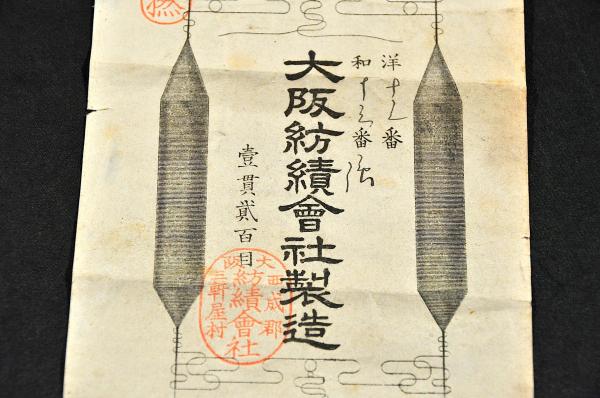 洋十九番
和十三番
大阪紡績會社製造
壹貫貳百目
大阪
西成郡
三軒屋村
紡績會社
撚